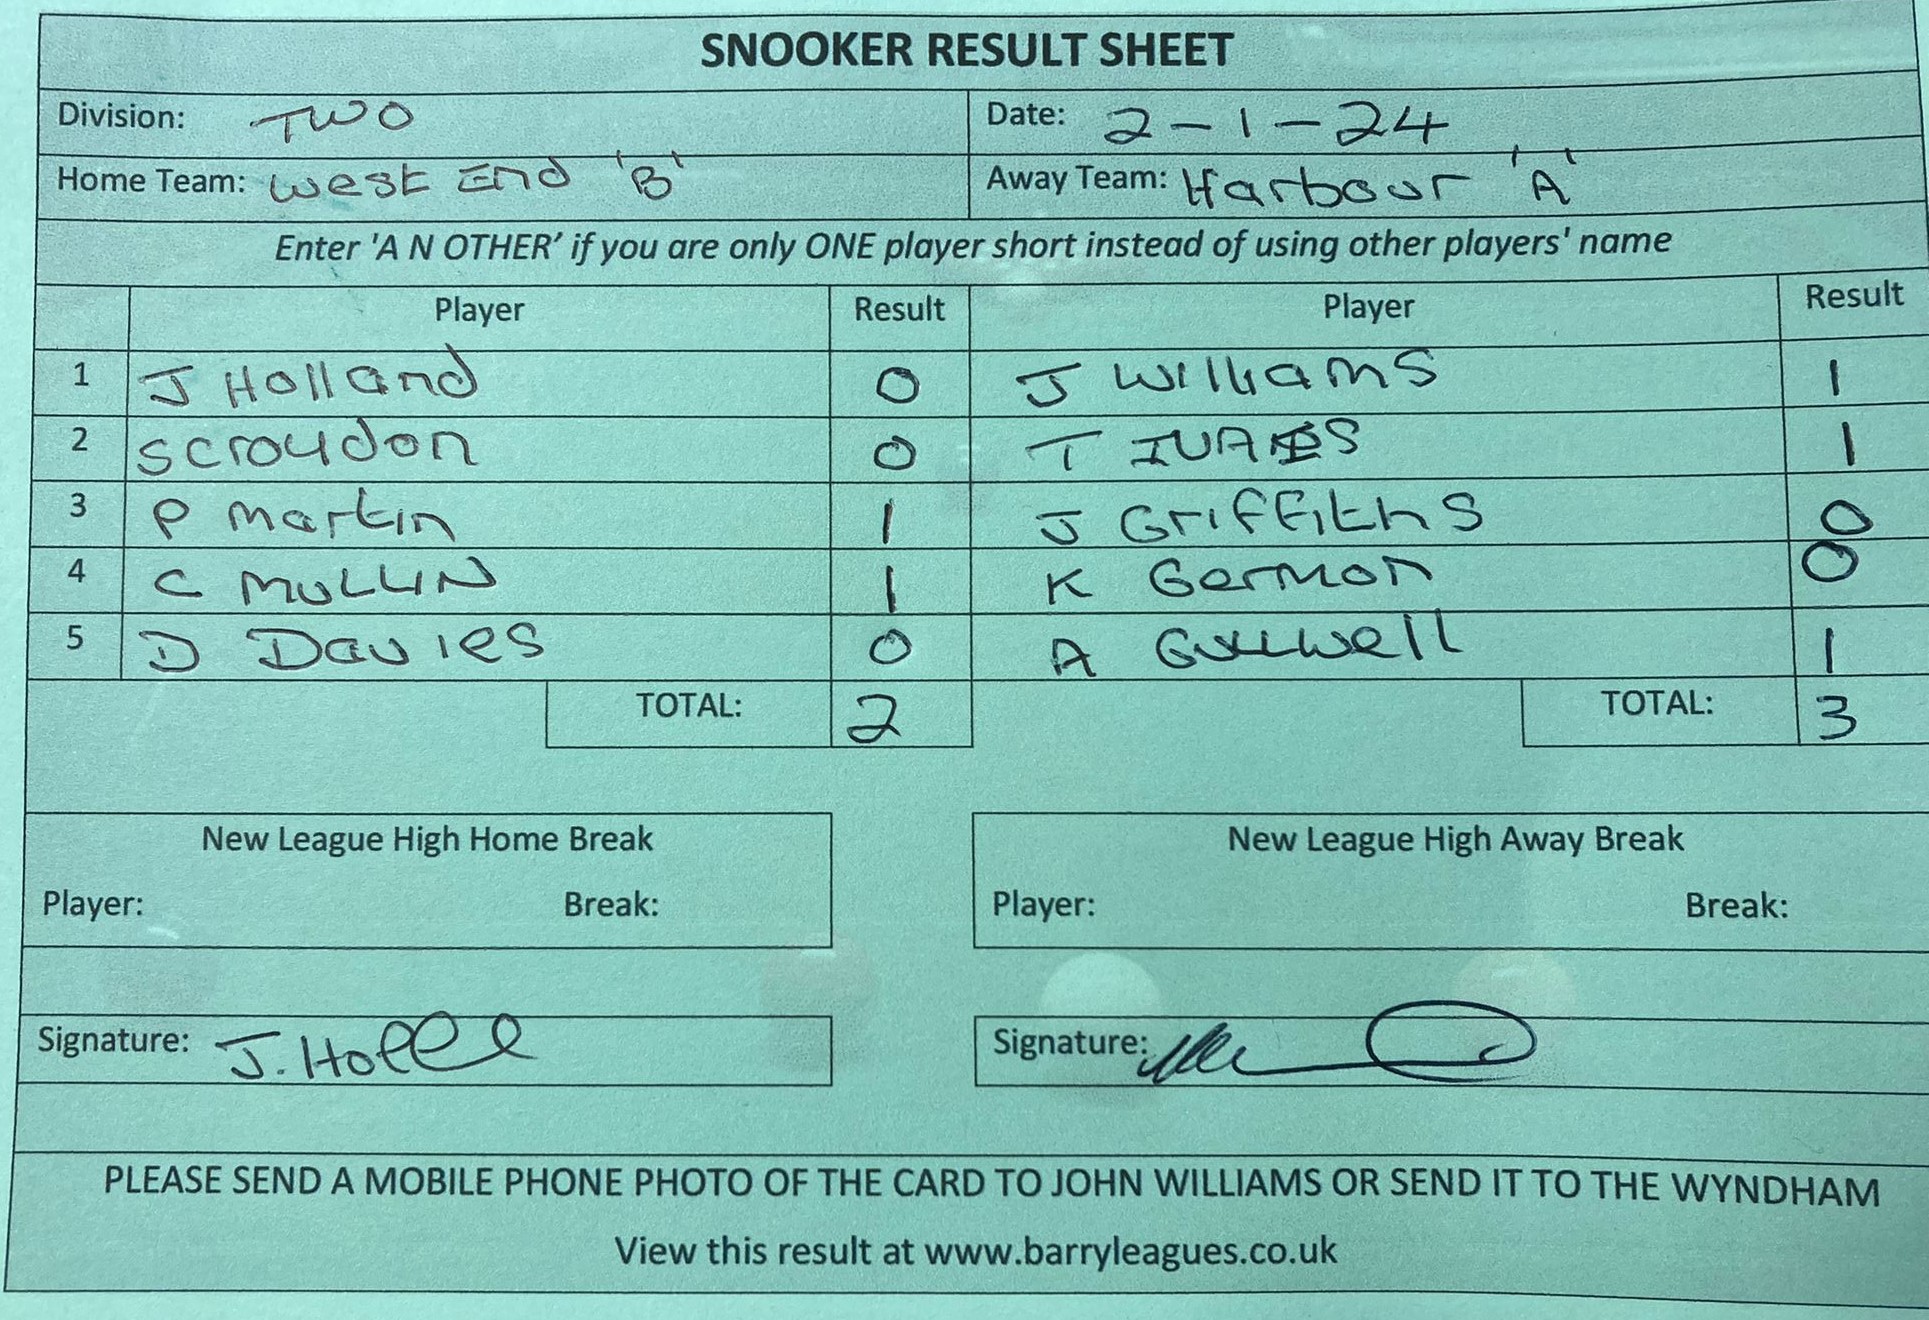 SNOOKER RESULT SHEET
Division: TWO Date: 2-1-24
Home Team: West End 'B' Away Team: Harbour 'A'
Enter 'A N OTHER' if you are only ONE player short instead of using other players' name
Player Result Player Result
1 J Holland 0 J Williams 1
2 S Croydon 0 T 1
3 P Martin 1 J Griffiths 0
4 C MULLIN 1 K Germon 0
5 D Davies 0 A Gullwell 1
TOTAL: 2 TOTAL: 3
New League High Home Break New League High Away Break
Player: Break: Player: Break:
Signature: J. Signature:
PLEASE SEND A MOBILE PHONE PHOTO OF THE CARD TO JOHN WILLIAMS OR SEND IT TO THE WYNDHAM
View this result at www.barryleagues.co.uk